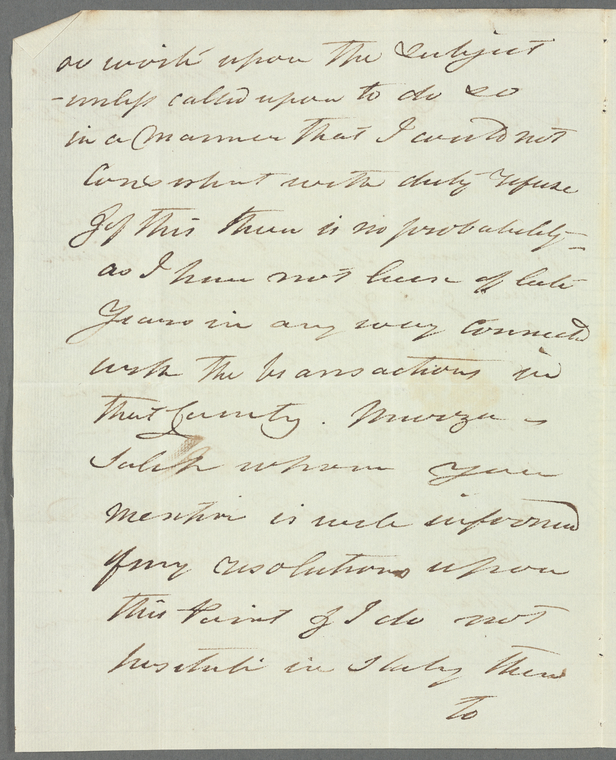 or write upon the subject
-unless called upon to do so
in a manner that I could not
Consistent with duty refuse
Of this there is no probability -
as I have not been of late
Years in any way connected
with the transactions in
that County. Meerza -
Saleh whom you
mention is well informed
of my resolutions upon
this Point & I do not
hesitate in stating them
to